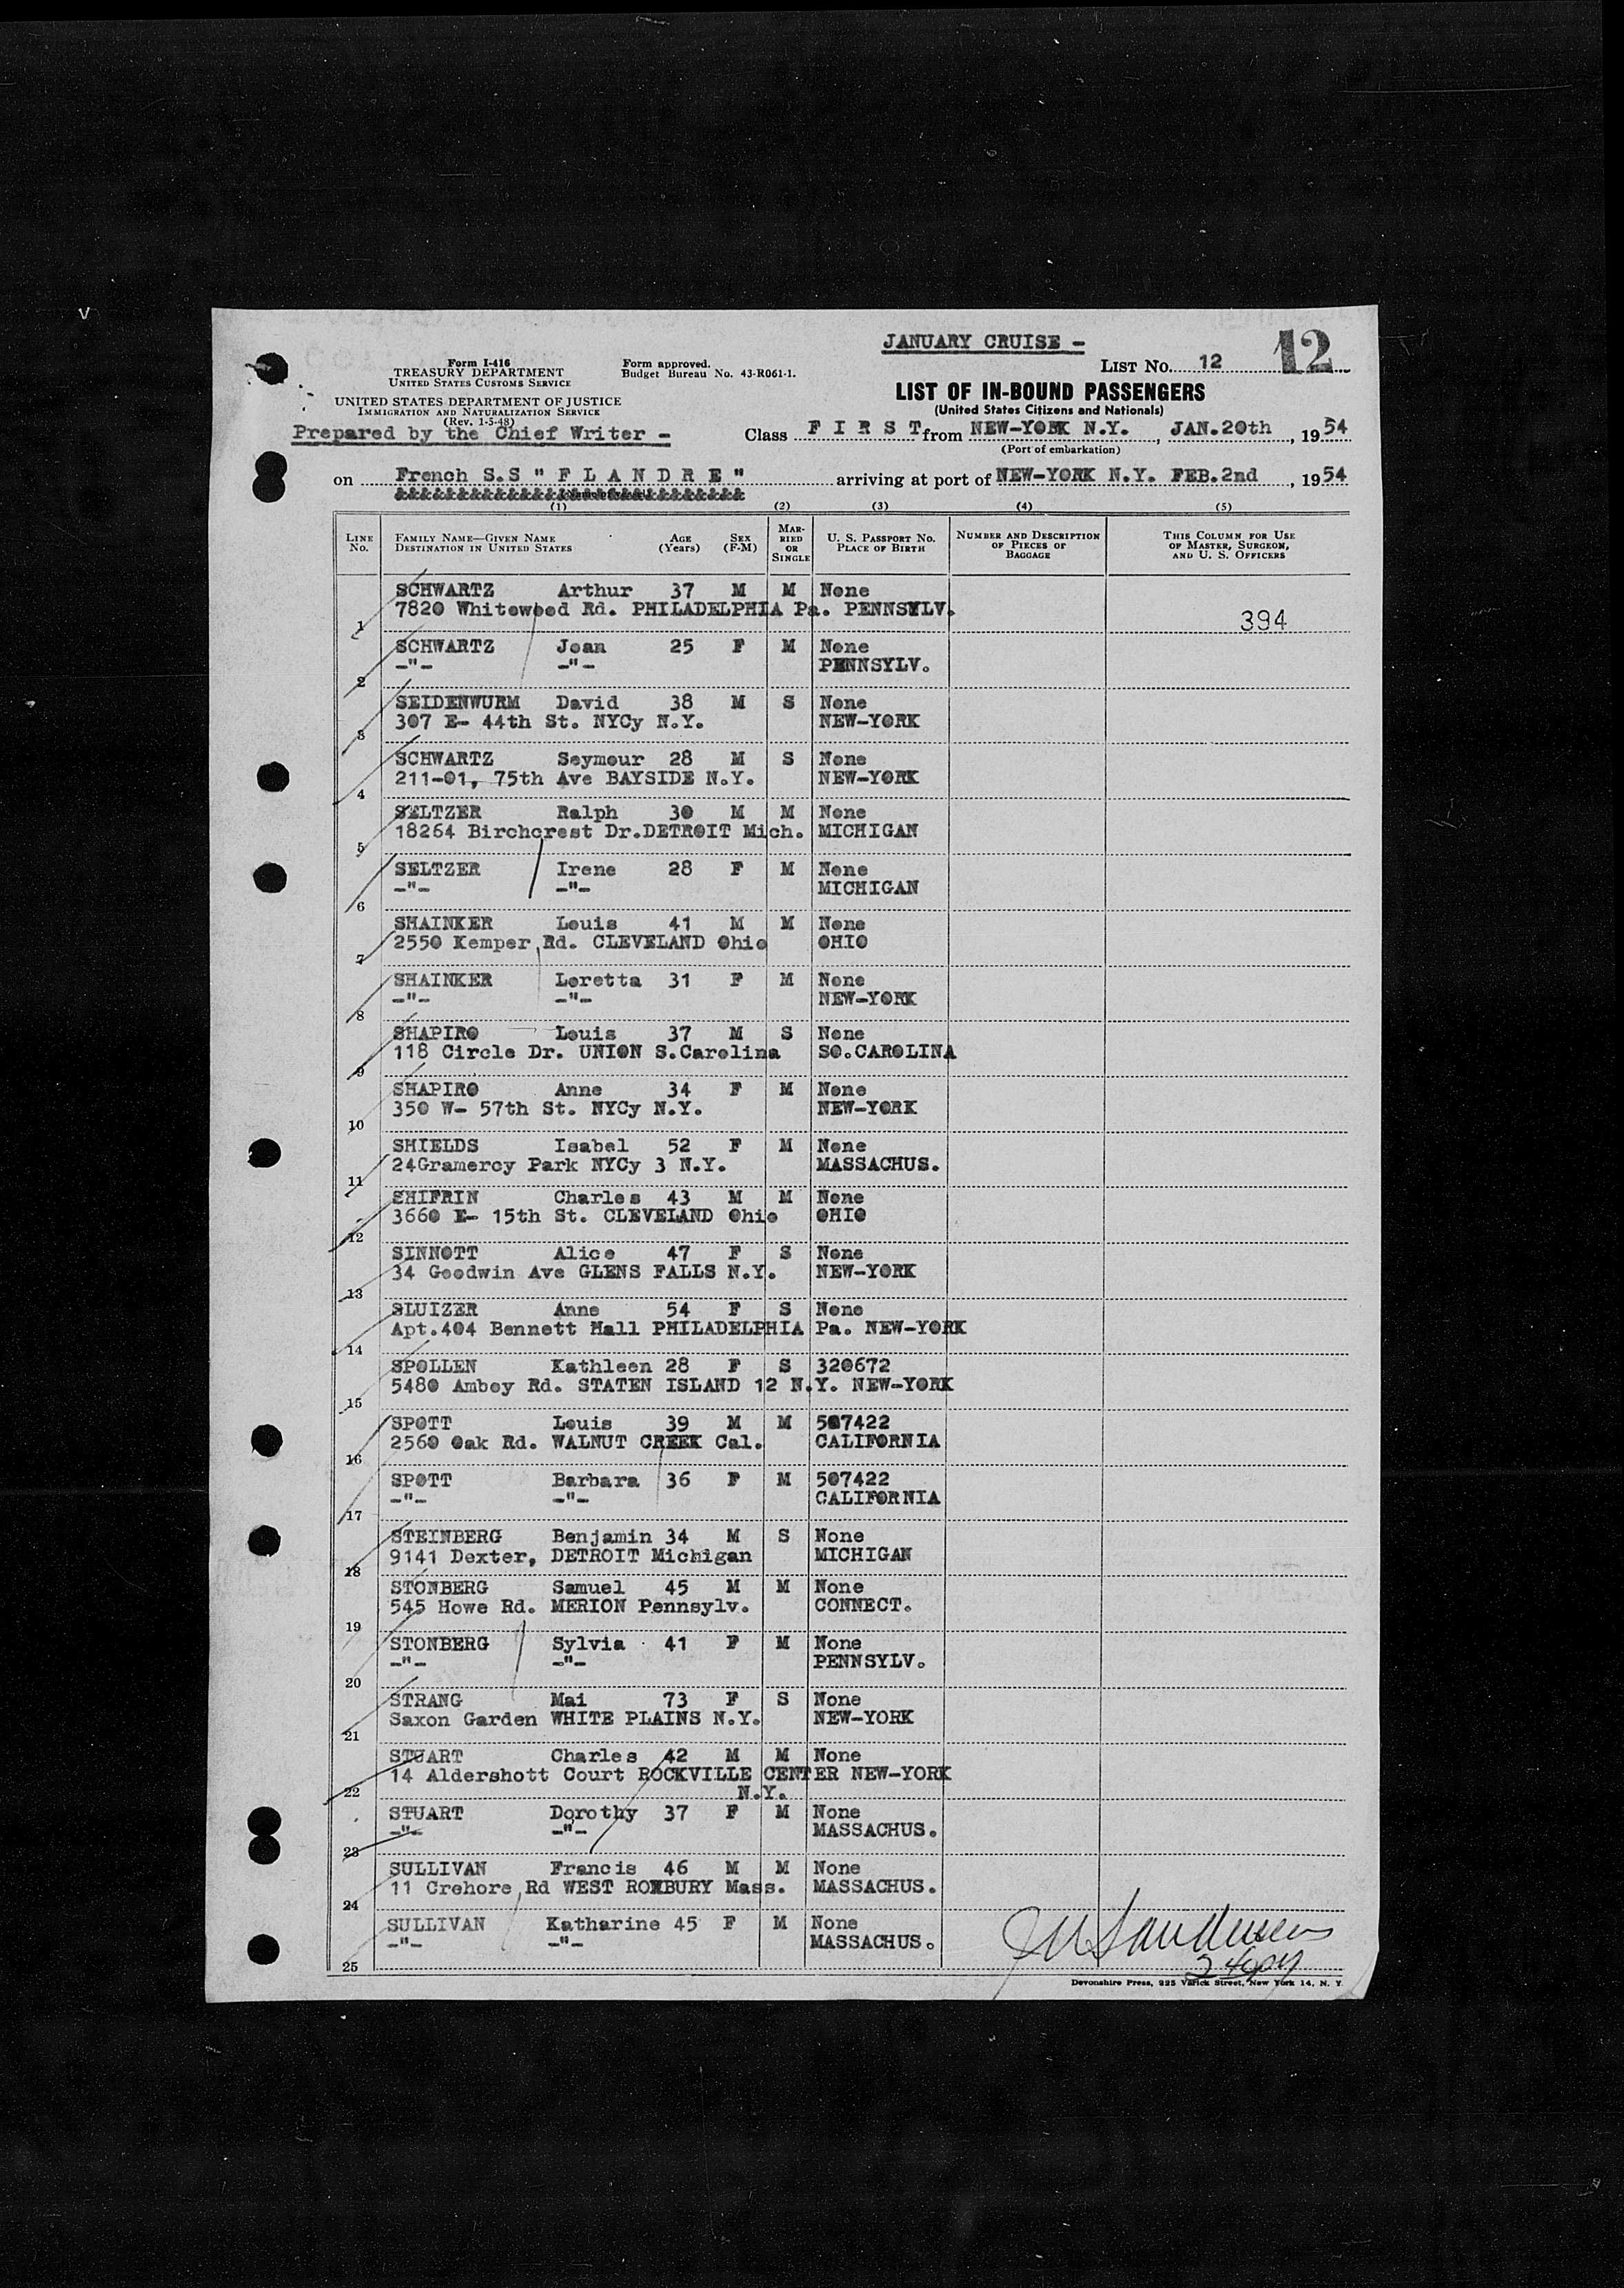 JANUARY CRUISE -
12
Form I-416
TREASURY DEPARTMENT
UNITED STATES CUSTOMS SERVICE
Form approved.
Budget Bureau No. 43-R061-1.
LIST No. 12
LIST OF IN-BOUND PASSENGERS
(United States Citizens and Nationals)
UNITED STATES DEPARTMENT OF JUSTICE
IMMIGRATION AND NATURALIZATION SERVICE
(Rev. 1-5-48)
Prepared by the Chief Writer -
Class F I R S T from NEW-YORK N.Y. , JAN.20th , 1954
(Port of embarkation)
on French S.S " F L A N D R E " arriving at port of NEW-YORK N.Y. FEB.2nd , 1954
(1) (2) (3) (4) (5)
LINE No. FAMILY NAME—GIVEN NAME DESTINATION IN UNITED STATES AGE (Years) SEX (F-M) MARRIED OR SINGLE U. S. PASSPORT NO. PLACE OF BIRTH NUMBER AND DESCRIPTION OF PIECES OF BAGGAGE THIS COLUMN FOR USE OF MASTER, SURGEON, AND U. S. OFFICERS
SCHWARTZ Arthur 37 M M None
7820 Whitewood Rd. PHILADELPHIA Pa. PENNSYLV.
1 394
SCHWARTZ Joan 25 F M None
-"- -"- PENNSYLV.
2
SEIDENWURM David 38 M S None
307 E- 44th St. NYCy N.Y. NEW-YORK
3
SCHWARTZ Seymour 28 M S None
211-01, 75th Ave BAYSIDE N.Y. NEW-YORK
4
SELTZER Ralph 30 M M None
18264 Birchcrest Dr.DETROIT Mich. MICHIGAN
5
SELTZER Irene 28 F M None
-"- -"- MICHIGAN
6
SHAINKER Louis 41 M M None
2550 Kemper Rd. CLEVELAND Ohio OHIO
7
SHAINKER Loretta 31 F M None
-"- -"- NEW-YORK
8
SHAPIRO Louis 37 M S None
118 Circle Dr. UNION S.Carolina SO.CAROLINA
9
SHAPIRO Anne 34 F M None
350 W- 57th St. NYCy N.Y. NEW-YORK
10
SHIELDS Isabel 52 F M None
24Gramercy Park NYCy 3 N.Y. MASSACHUS.
11
SHIFRIN Charles 43 M M None
3660 E- 15th St. CLEVELAND Ohio OHIO
12
SINNOTT Alice 47 F S None
34 Goodwin Ave GLENS FALLS N.Y. NEW-YORK
13
SLUIZER Anne 54 F S None
Apt.404 Bennett Hall PHILADELPHIA Pa. NEW-YORK
14
SPOLLEN Kathleen 28 F S 320672
5480 Amboy Rd. STATEN ISLAND 12 N.Y. NEW-YORK
15
SPOTT Louis 39 M M 507422
2560 Oak Rd. WALNUT CREEK Cal. CALIFORNIA
16
SPOTT Barbara 36 F M 507422
-"- -"- CALIFORNIA
17
STEINBERG Benjamin 34 M S None
9141 Dexter, DETROIT Michigan MICHIGAN
18
STONBERG Samuel 45 M M None
545 Howe Rd. MERION Pennsylv. CONNECT.
19
STONBERG Sylvia 41 F M None
-"- -"- PENNSYLV.
20
STRANG Mai 73 F S None
Saxon Garden WHITE PLAINS N.Y. NEW-YORK
21
STUART Charles 42 M M None
14 Aldershott Court ROCKVILLE CENTER NEW-YORK
22 N.Y.
STUART Dorothy 37 F M None
-"- -"- MASSACHUS.
23
SULLIVAN Francis 46 M M None
11 Crehore Rd WEST ROXBURY Mass. MASSACHUS.
24
SULLIVAN Katharine 45 F M None
-"- -"- MASSACHUS.
25
Devonshire Press, 225 Varick Street, New York 14, N. Y.